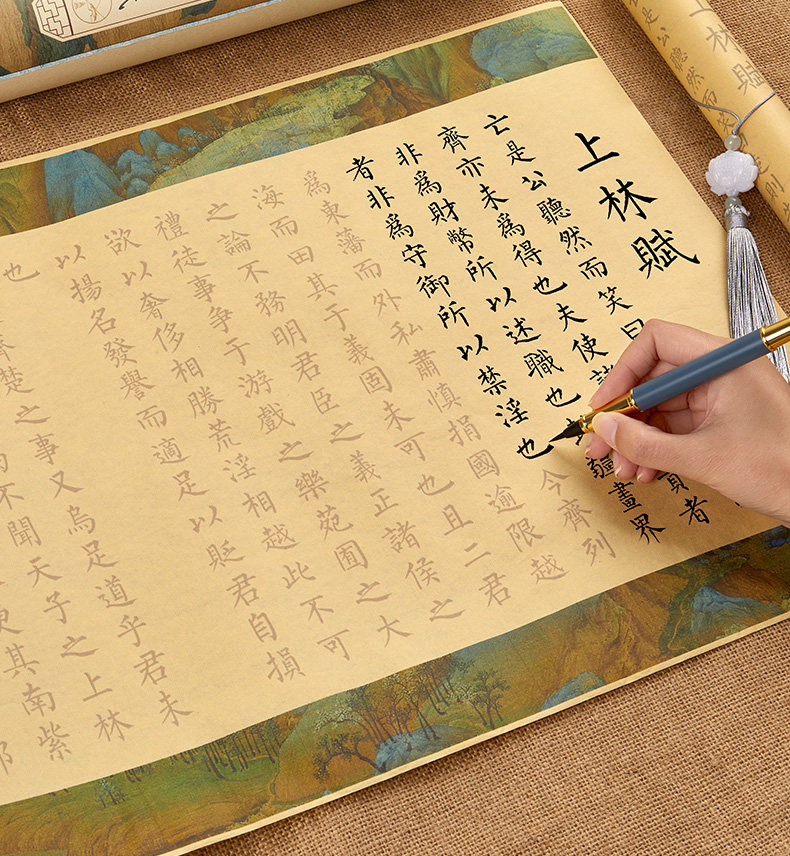 上林賦
亡是公聽然而笑曰
齊亦未爲得也夫使諸貢者
非爲財幣所以述職也疆畫界
者非爲守御所以禁淫也今齊列
爲東藩而外私肅慎捐國逾限越
海而田其于義固未可也且二君
之論不務明君臣之義正諸侯之
禮徒事爭于游戲之樂苑囿之大
欲以奢侈相勝荒淫相越此不可
以揚名發譽而適足以貶君自損
也齊楚之事又烏足道乎君未
不聞天子之上林
其南紫
上林賦
是公聽然而笑
則